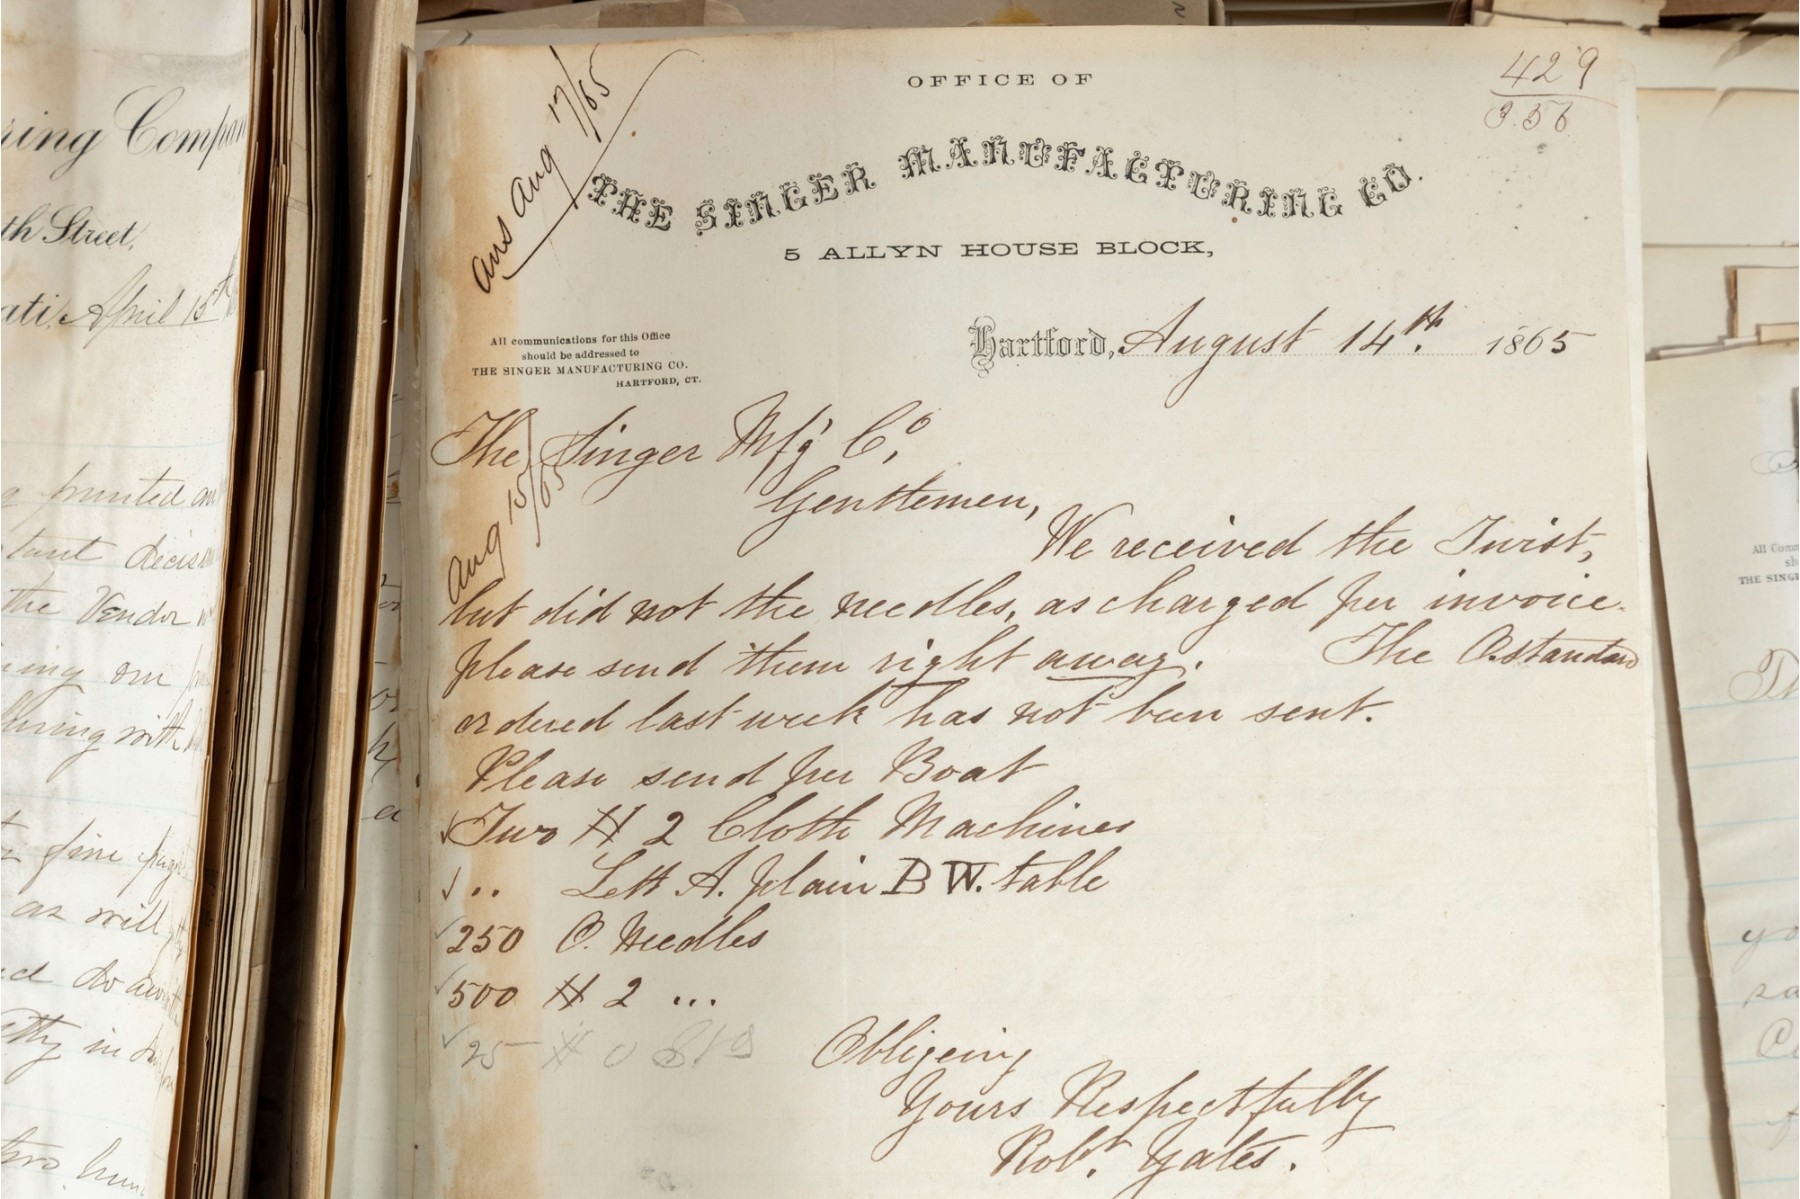 OFFICE OF
THE SINGER MANUFACTURING CO.
5 ALLYN HOUSE BLOCK,
429
356
ans Aug 17/65
All communications for this Office
should be addressed to
THE SINGER MANUFACTURING CO.
HARTFORD, CT.
Hartford, August 14th. 1865
The Singer Mfg Co,
Aug 15/65
Gentlemen,
We received the Twist,
but did not the needles, as charged per invoice.
please send them right away. The O. standard
ordered last week has not been sent.
Please send per Boat
Two # 2 Cloth Machines
.. Lett A. plain B W. table
250 O. Needles
500 # 2 ...
25 # 0
Obligeing
Yours Respectfully
Robt. Yates.
ing Compan
th Street,
ati, April 15th
printed an
the Vendor
ing on
with
fine
as will
in
All Com
THE SING
Th